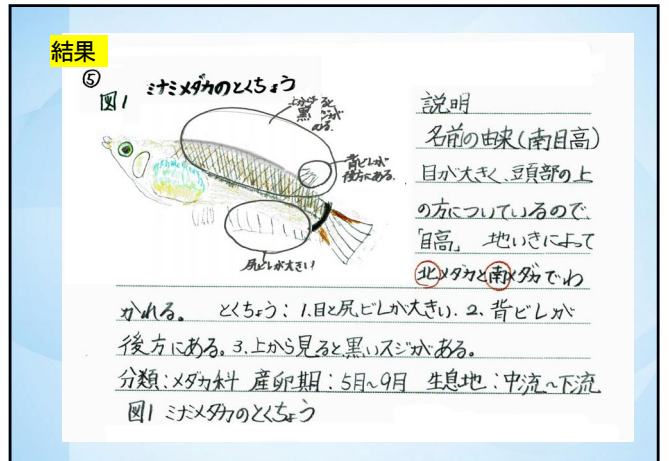 結果
⑤
図1 ミナミメダカのとくちょう
上から見ると
黒いスジが
ある。
背ビレが
後方にある。
尻ビレが大きい
説明
名前の由来(南目高)
目が大きく、頭部の上
の方についているので、
「目高」 地いきによって
北メダカと南メダカでわ
かれる。 とくちょう:1.目と尻ビレが大きい. 2、背ビレが
後方にある。3.上から見ると黒いスジがある。
分類:メダカ科 産卵期:5月~9月 生息地:中流~下流
図1 ミナミメダカのとくちょう